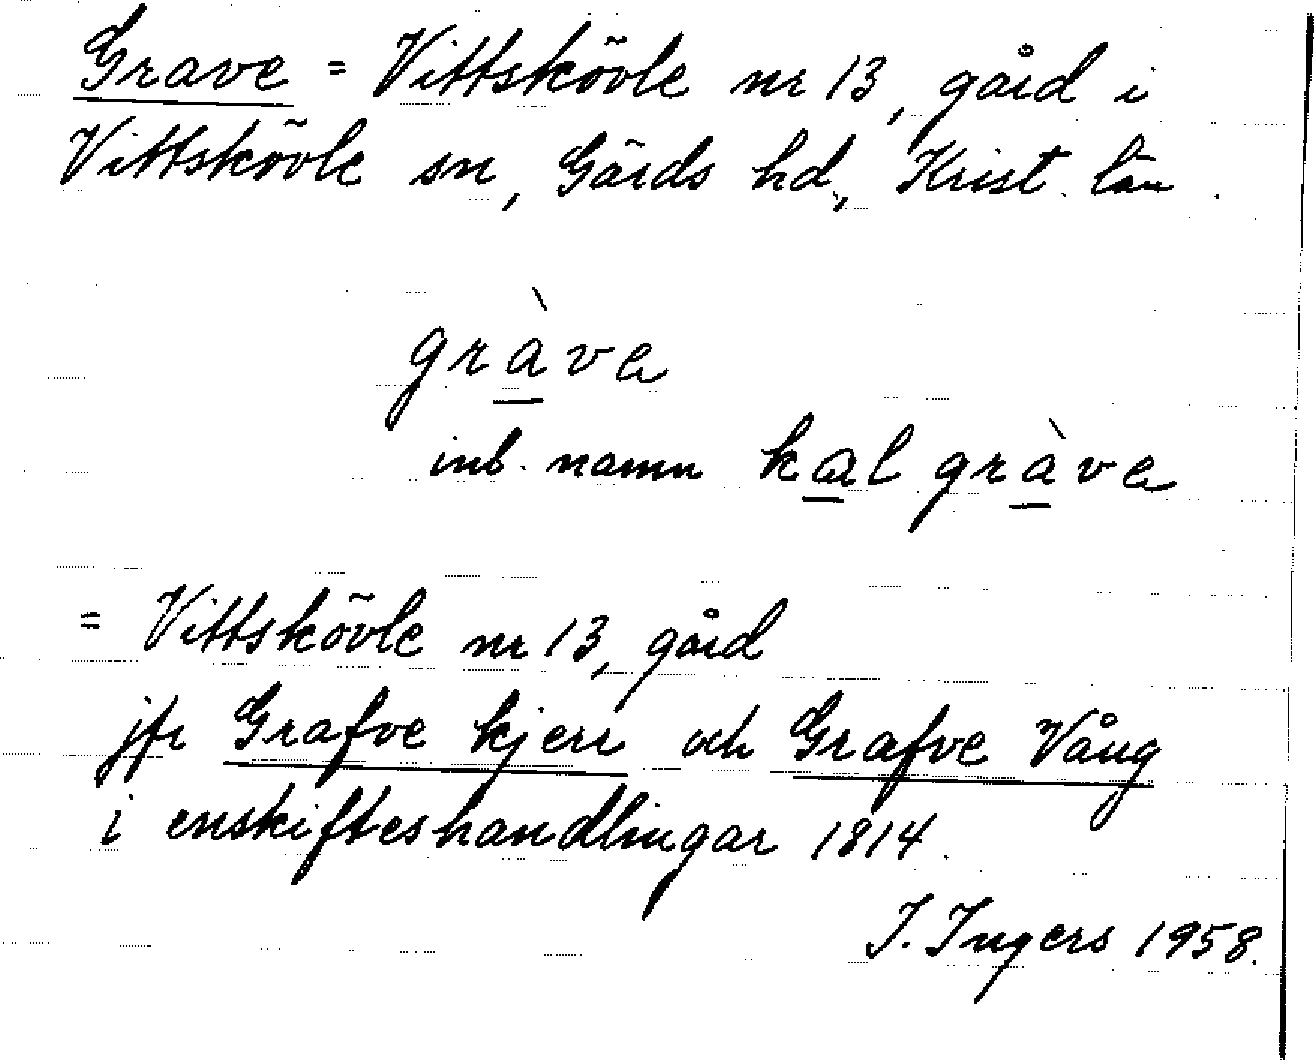 Grave = Vittskövle nr 13, gård i
Vittskövle sn, Gärds hd, Krist. län.
gràve
inb. namn kal gràve
= Vittskövle nr 13, gård
jfr Grafve kjerr och Grafve Vång
i enskifteshandlingar 1814.
I. Ingers 1958.